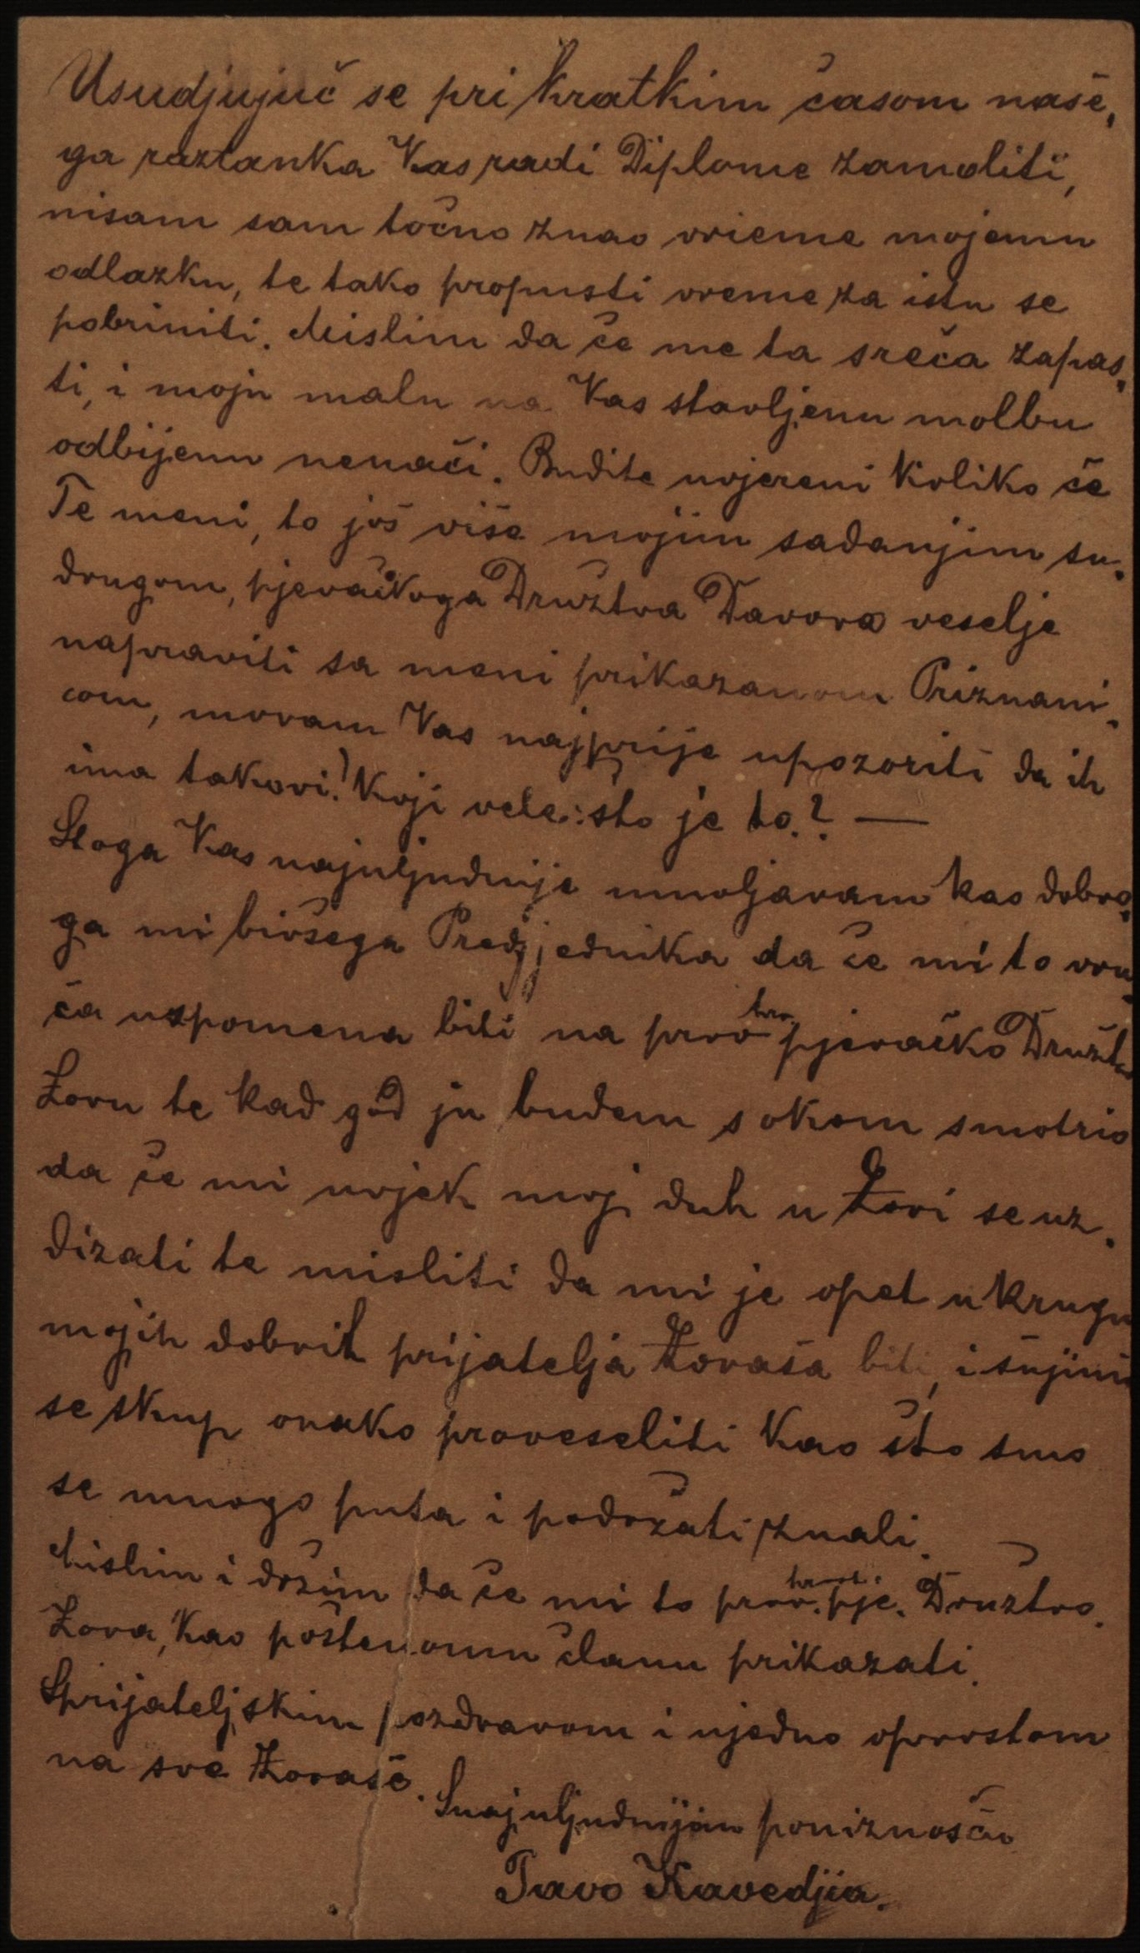 Usudjujuč se pri kratkim časom naše,
ga raztanka Vas radi Diplome zamoliti,
nisam sam točno znao vrieme mojemu
odlazku, te tako propusti vreme za istu se
pobriniti. Mislim da če me ta sreča zapas,
ti, i moju malu na Vas stavljenu molbu
odbijenu nenači. Budite uvjereni koliko če
Te meni, to još više mojim sadanjim su,
drugom, pjevačkoga Družtva Davora veselje
napraviti sa meni prikazanom Priznani,
com, moram Vas najprije upozoriti da ih
ima takovi! Koji vele: što je to.? —
Stoga Vas najuljudnije umoljavam kao dobro,
ga mi bivšega Predsjednika da če mi to vru,
ča uspomena biti na prvo hrv. pjevačko Družtvo
Zoru te kad god ju budem s okom smotrio
da če mi uvjek moj duh u Zori se uz,
dizati te misliti da mi je opet u krugu
mojih dobrih prijatelja Zoraša biti, i šnjima
se skup onako proveseliti kao što smo
se mnogo puta i podržati znali.
Mislim i držim da če mi to prvo hrvat. pje. Družtvo.
Zora, kao poštenomu članu prikazati.
S prijateljskim pozdravom i ujedno oprostom
na sve Zoraše.
S najuljudnijom poniznošču
Pavo Kavedjia.